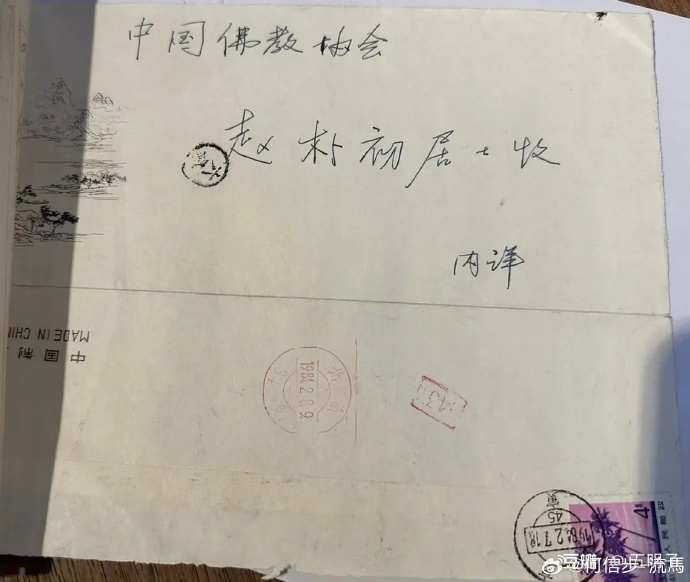 中国佛教协会
赵朴初居士收
内详
中国制
MADE IN CHIN
北京
1984.2.8.9
43
1984.2.7.18
45
4
人民邮政